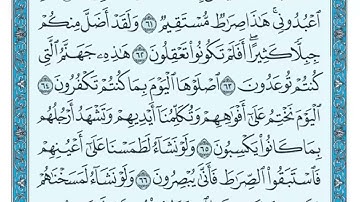 ٱعْبُدُونِى ۚ هَٰذَا صِرَٰطٌ مُّسْتَقِيمٌ ٦١ وَلَقَدْ أَضَلَّ مِنكُمْ
جِبِلًّا كَثِيرًا ۖ أَفَلَمْ تَكُونُوا۟ تَعْقِلُونَ ٦٢ هَٰذِهِۦ جَهَنَّمُ ٱلَّتِى
كُنتُمْ تُوعَدُونَ ٦٣ ٱصْلَوْهَا ٱلْيَوْمَ بِمَا كُنتُمْ تَكْفُرُونَ ٦٤
ٱلْيَوْمَ نَخْتِمُ عَلَىٰٓ أَفْوَٰهِهِمْ وَتُكَلِّمُنَآ أَيْدِيهِمْ وَتَشْهَدُ أَرْجُلُهُم
بِمَا كَانُوا۟ يَكْسِبُونَ ٦٥ وَلَوْ نَشَآءُ لَطَمَسْنَا عَلَىٰٓ أَعْيُنِهِمْ
فَٱسْتَبَقُوا۟ ٱلصِّرَٰطَ فَأَنَّىٰ يُبْصِرُونَ ٦٦ وَلَوْ نَشَآءُ لَمَسَخْنَٰهُمْ